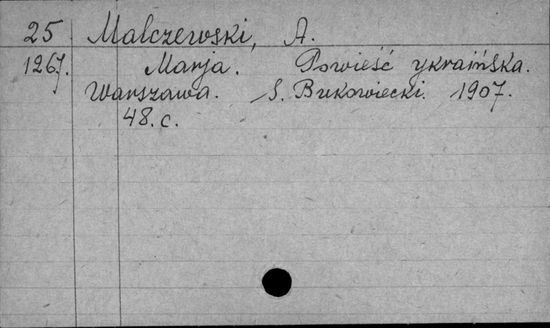 25 Malczewski, A.
1267. Marja. Powieść ykraińska.
Warszawa. S. Bukowiecki. 1907.
48. c.